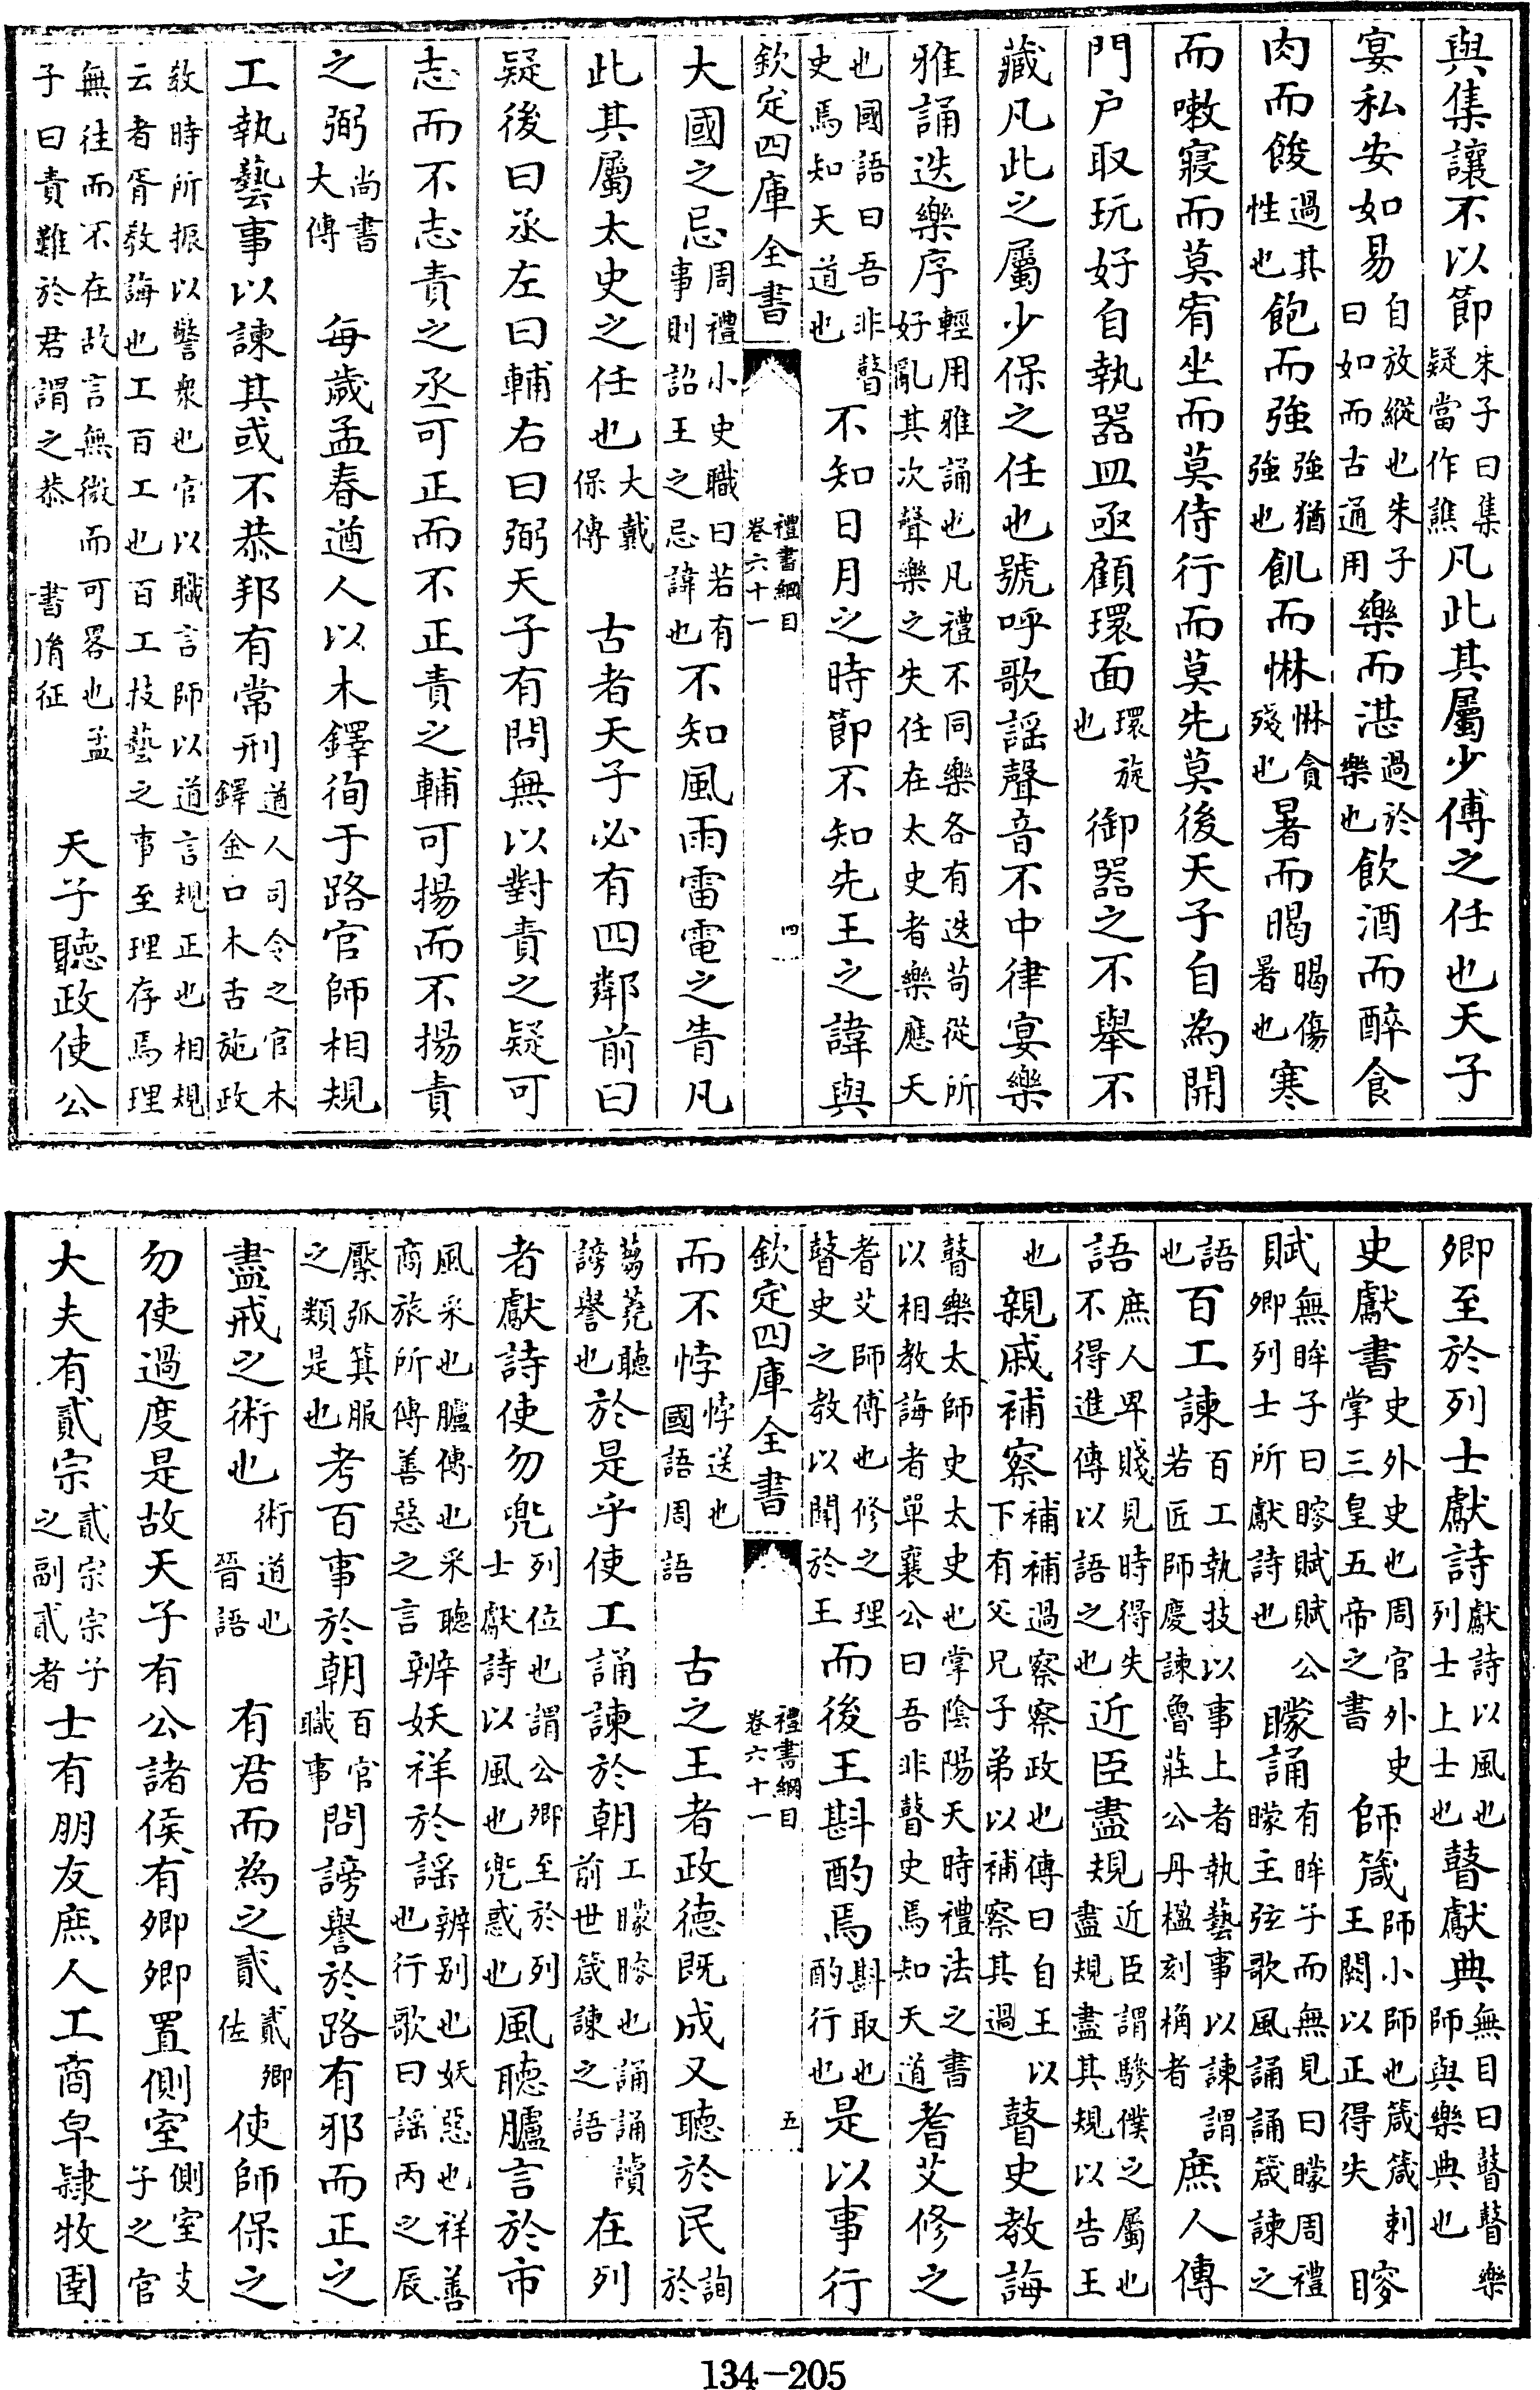 與集讓不以節朱子曰集疑當作譙凡此其屬少傅之任也天子
宴私安如易自放縱也朱子曰如而古通用樂而湛過於樂也飲酒而醉食
肉而餕過其性也飽而強強猶強也飢而惏惏貪殘也暑而暍暍傷暑也寒
而嗽寢而莫宥坐而莫侍行而莫先莫後天子自為開
門户取玩好自執器皿亟顧環面環旋也御器之不舉不
藏凡此之屬少保之任也號呼歌謡聲音不中律宴樂
雅誦迭樂序輕用雅誦也凡禮不同樂各有迭苟從所好亂其次聲樂之失任在太史者樂應天
也國語曰吾非瞽史焉知天道也不知日月之時節不知先王之諱與
欽定四庫全書 禮書綱目 卷六十一 四
大國之忌周禮小史職曰若有事則詔王之忌諱也不知風雨雷電之眚凡
此其屬太史之任也大戴保傅 古者天子必有四鄰前曰
疑後曰丞左曰輔右曰弼天子有問無以對責之疑可
志而不志責之丞可正而不正責之輔可揚而不揚責
之弼尚書大傳 每歲孟春遒人以木鐸徇于路官師相規
工執藝事以諫其或不恭邦有常刑遒人司令之官木鐸金口木舌施政
教時所振以警衆也官以職言師以道言規正也相規云者胥教誨也工百工也百工技藝之事至理存焉理
無往而不在故言無微而可畧也孟子曰責難於君謂之恭 書胤征 天子聽政使公
卿至於列士獻詩獻詩以風也列士上士也瞽獻典無目曰瞽瞽樂師與樂典也
史獻書史外史也周官外史掌三皇五帝之書師箴師小師也箴箴刺王闕以正得失矇
賦無眸子曰瞍賦賦公卿列士所獻詩也矇誦有眸子而無見曰矇周禮矇主弦歌風誦誦箴諫之
語也百工諫百工執技以事上者執藝事以諫謂若匠師慶諫魯莊公丹楹刻桷者庶人傳
語庶人卑賤見時得失不得進傳以語之也近臣盡規近臣謂驂僕之屬也盡規盡其規以告王
也親戚補察補補過察察政也傳曰自王以下有父兄子弟以補察其過瞽史教誨
瞽樂太師史太史也掌陰陽天時禮法之書以相教誨者單襄公曰吾非瞽史焉知天道耆艾修之
耆艾師傅也修之理瞽史之教以聞於王而後王斟酌焉斟取也酌行也是以事行
欽定四庫全書 禮書綱目 卷六十一 五
而不悖悖逆也國語周語 古之王者政德既成又聽於民詢於
芻蕘聽謗譽也於是乎使工誦諫於朝工矇瞍也誦誦讀前世箴諫之語在列
者獻詩使勿兜列位也謂公卿至於列士獻詩以風也兜惑也風聽臚言於市
風采也臚傳也采聽商旅所傳善惡之言辨妖祥於謡辨别也妖惡也祥善也行歌曰謡丙之辰
檿弧箕服之類是也考百事於朝百官職事問謗譽於路有邪而正之
盡戒之術也術道也晉語 有君而為之貳貳卿佐使師保之
勿使過度是故天子有公諸侯有卿卿置側室側室支子之官
大夫有貳宗貳宗宗子之副貳者士有朋友庶人工商皁隸牧圉
134-205